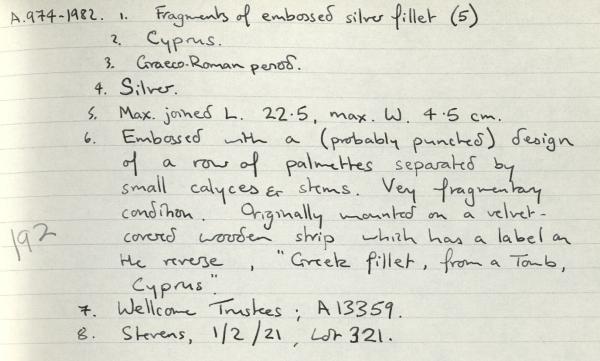 A.974-1982. 1. Fragments of embossed silver fillet (5)
2. Cyprus.
3. Graeco-Roman period.
4. Silver.
5. Max. joined L. 22.5, max. W. 4.5 cm.
6. Embossed with a (probably punched) design
of a row of palmettes separated by
small calyces & stems. Very fragmentary
condition. Originally mounted on a velvet-
covered wooden strip which has a label on
the reverse, "Greek fillet, from a Tomb,
Cyprus".
192
7. Wellcome Trustees; A13359.
8. Stevens, 1/2/21, Lot 321.